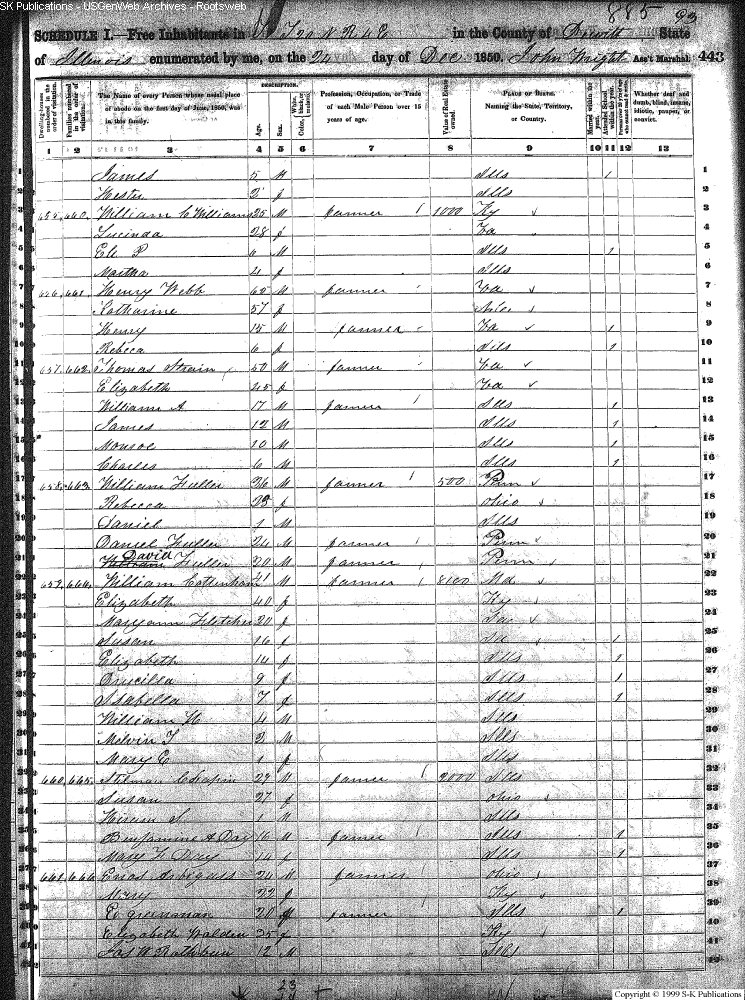 SK Publications - USGenWeb Archives - Rootsweb
885 93
SCHEDULE I.—Free Inhabitants in T 20 N R 4 E in the County of Dewitt State
of Illinois enumerated by me, on the 24 day of Dec 1850. John Wright Ass't Marshal. 443
Dwelling-houses numbered in the order of visitation. Families numbered in the order of visitation. The Name of every Person whose usual place of abode on the first day of June, 1850, was in this family. DESCRIPTION. Age. Sex. Color, White, black, or mulatto. Profession, Occupation, or Trade of each Male Person over 15 years of age. Value of Real Estate owned. PLACE OF BIRTH. Naming the State, Territory, or Country. Married within the year. Attended School within the year. Persons over 20 y'rs of age who cannot read & write. Whether deaf and dumb, blind, insane, idiotic, pauper, or convict.
1 2 3 4 5 6 7 8 9 10 11 12 13
James 5 M Ills 1 1
Hester 2 f Ills 2
3 655 660 William C Williams 25 M farmer 1000 Ky 3
Lucinda 28 f Va 4
Eli P 6 M Ills 1 5
Martha 4 f Ills 6
656 661 Henry Webb 62 M farmer Va 7
Katharine 57 f 8
Henry 15 M farmer Va 1 9
Rebeca 6 f Ills 1 10
657 662 Thomas Strain 50 M farmer Va 11
Elizabeth 45 f Va 12
William A 17 M farmer Ills 1 13
James 12 M Ills 1 14
Monroe 10 M Ills 1 15
Charles 6 M Ills 1 16
658 663 William Fuller 26 M farmer 500 Penn 17
Rebecca 23 f ohio 18
Daniel 1 M Ills 19
Daniel Fuller 24 M farmer Penn 20
William David Fuller 20 M farmer Penn 21
659 664 William Cottenham 41 M farmer 8100 Md 22
Elizabeth 40 f Ky 23
Maryann Fletcher 20 f Ia 24
Susan 16 f Ia 1 25
Elizabeth 14 f Ills 1 26
Drucilla 9 f Ills 1 27
Isabella 7 f Ills 1 28
William H 4 M Ills 29
Melvin T 2 M Ills 30
Mary E 1 f Ills 31
660 665 Stilman Chapin 29 M farmer 2000 Ills 32
Susan 27 f ohio 33
Hiram S. 1 M Ills 34
Benjamine A Day 16 M farmer Ills 1 35
Mary F Day 14 f Ills 1 36
661 666 Enos Arbigass 24 M farmer ohio 37
Mary 22 f Ky 38
Ed greenman 20 M farmer Ills 1 39
Elizabeth Walden 35 f Ky 40
Jas W Rathbun 12 M Ills 41
42
23
Copyright © 1999 S-K Publications